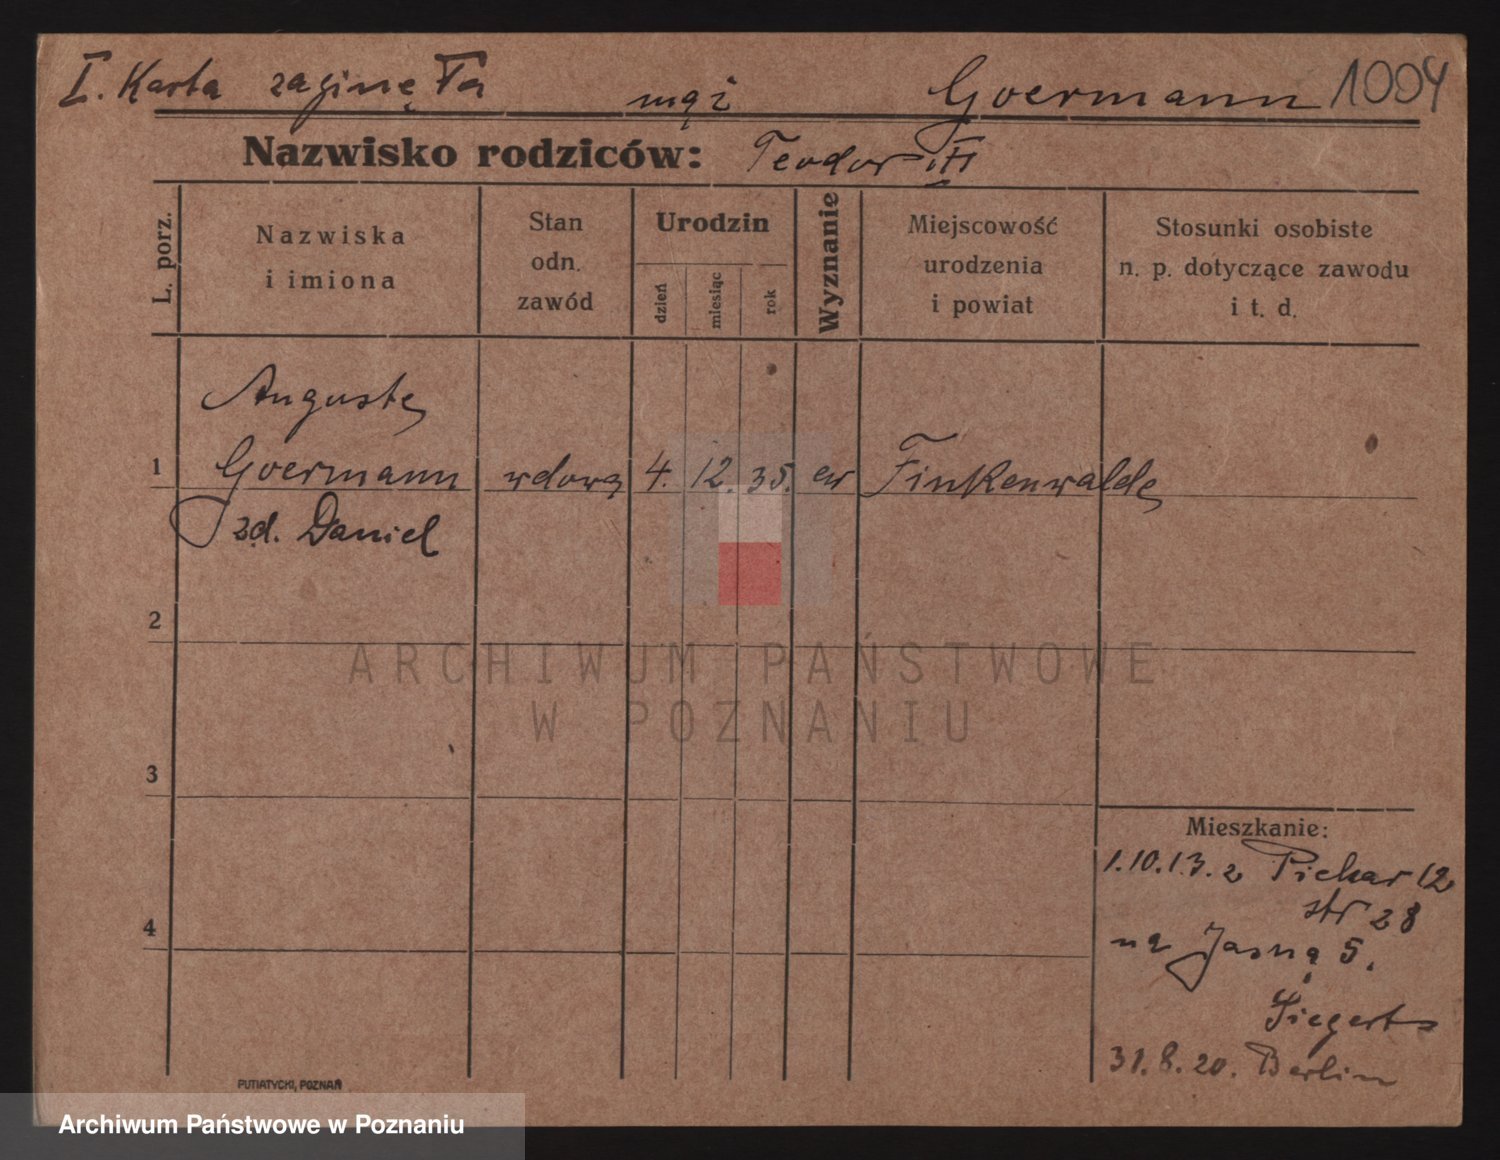 I. Karta zaginęła mąż Goermann 1004
Nazwisko rodziców: Teodor †
L. porz.
Nazwiska
i imiona
Stan
odn.
zawód
Urodzin
dzień
miesiąc
rok
Wyznanie
Miejscowość
urodzenia
i powiat
Stosunki osobiste
n. p. dotyczące zawodu
i t. d.
Auguste
1 Goermann wdowa 4. 12. 35. ew Finkenwalde
zd. Daniel
2
3
4
Mieszkanie:
1.10.13. z Piekar 12
str 28
na Jasną 5.
Siegert
31.8.20. Berlin
PUTIATYCKI, POZNAŃ
ARCHIWUM PAŃSTWOWE
W POZNANIU
Archiwum Państwowe w Poznaniu